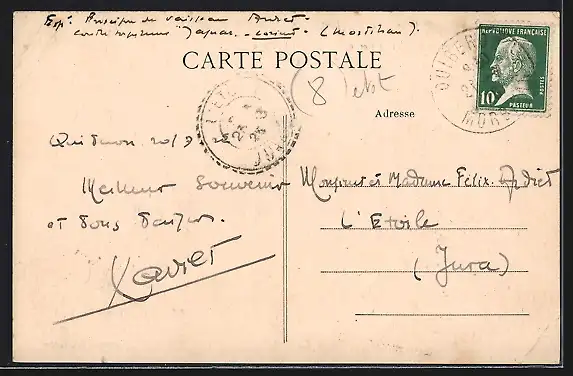 Enseigne de vaisseau
contre torpilleur Lorient (Morbihan).
CARTE POSTALE
RÉPUBLIQUE FRANÇAISE
10c
POSTES
PASTEUR
QUIBERON
MORB
(8
Adresse
JURA
Quiberon 20/9
Meilleur Souvenir
et bons baisers.
Xavier
Monsieur et Madame Félix
L'Etoile
(Jura)